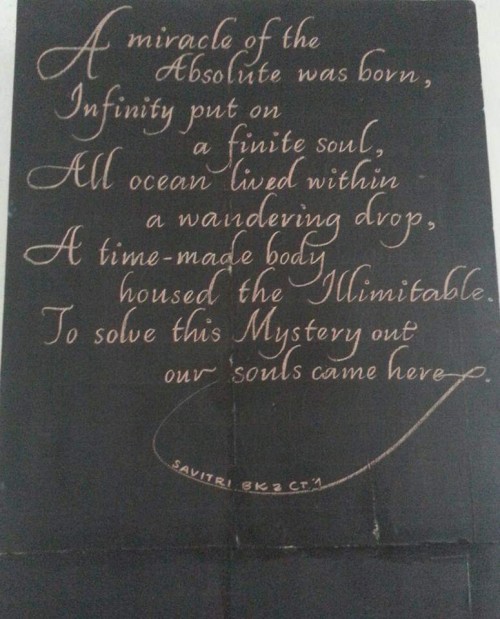 A miracle of the
Absolute was born,
Infinity put on
a finite soul,
All ocean lived within
a wandering drop,
A time-made body
housed the Illimitable.
To solve this Mystery out
our souls came here.
SAVITRI BK 2 CT. 1